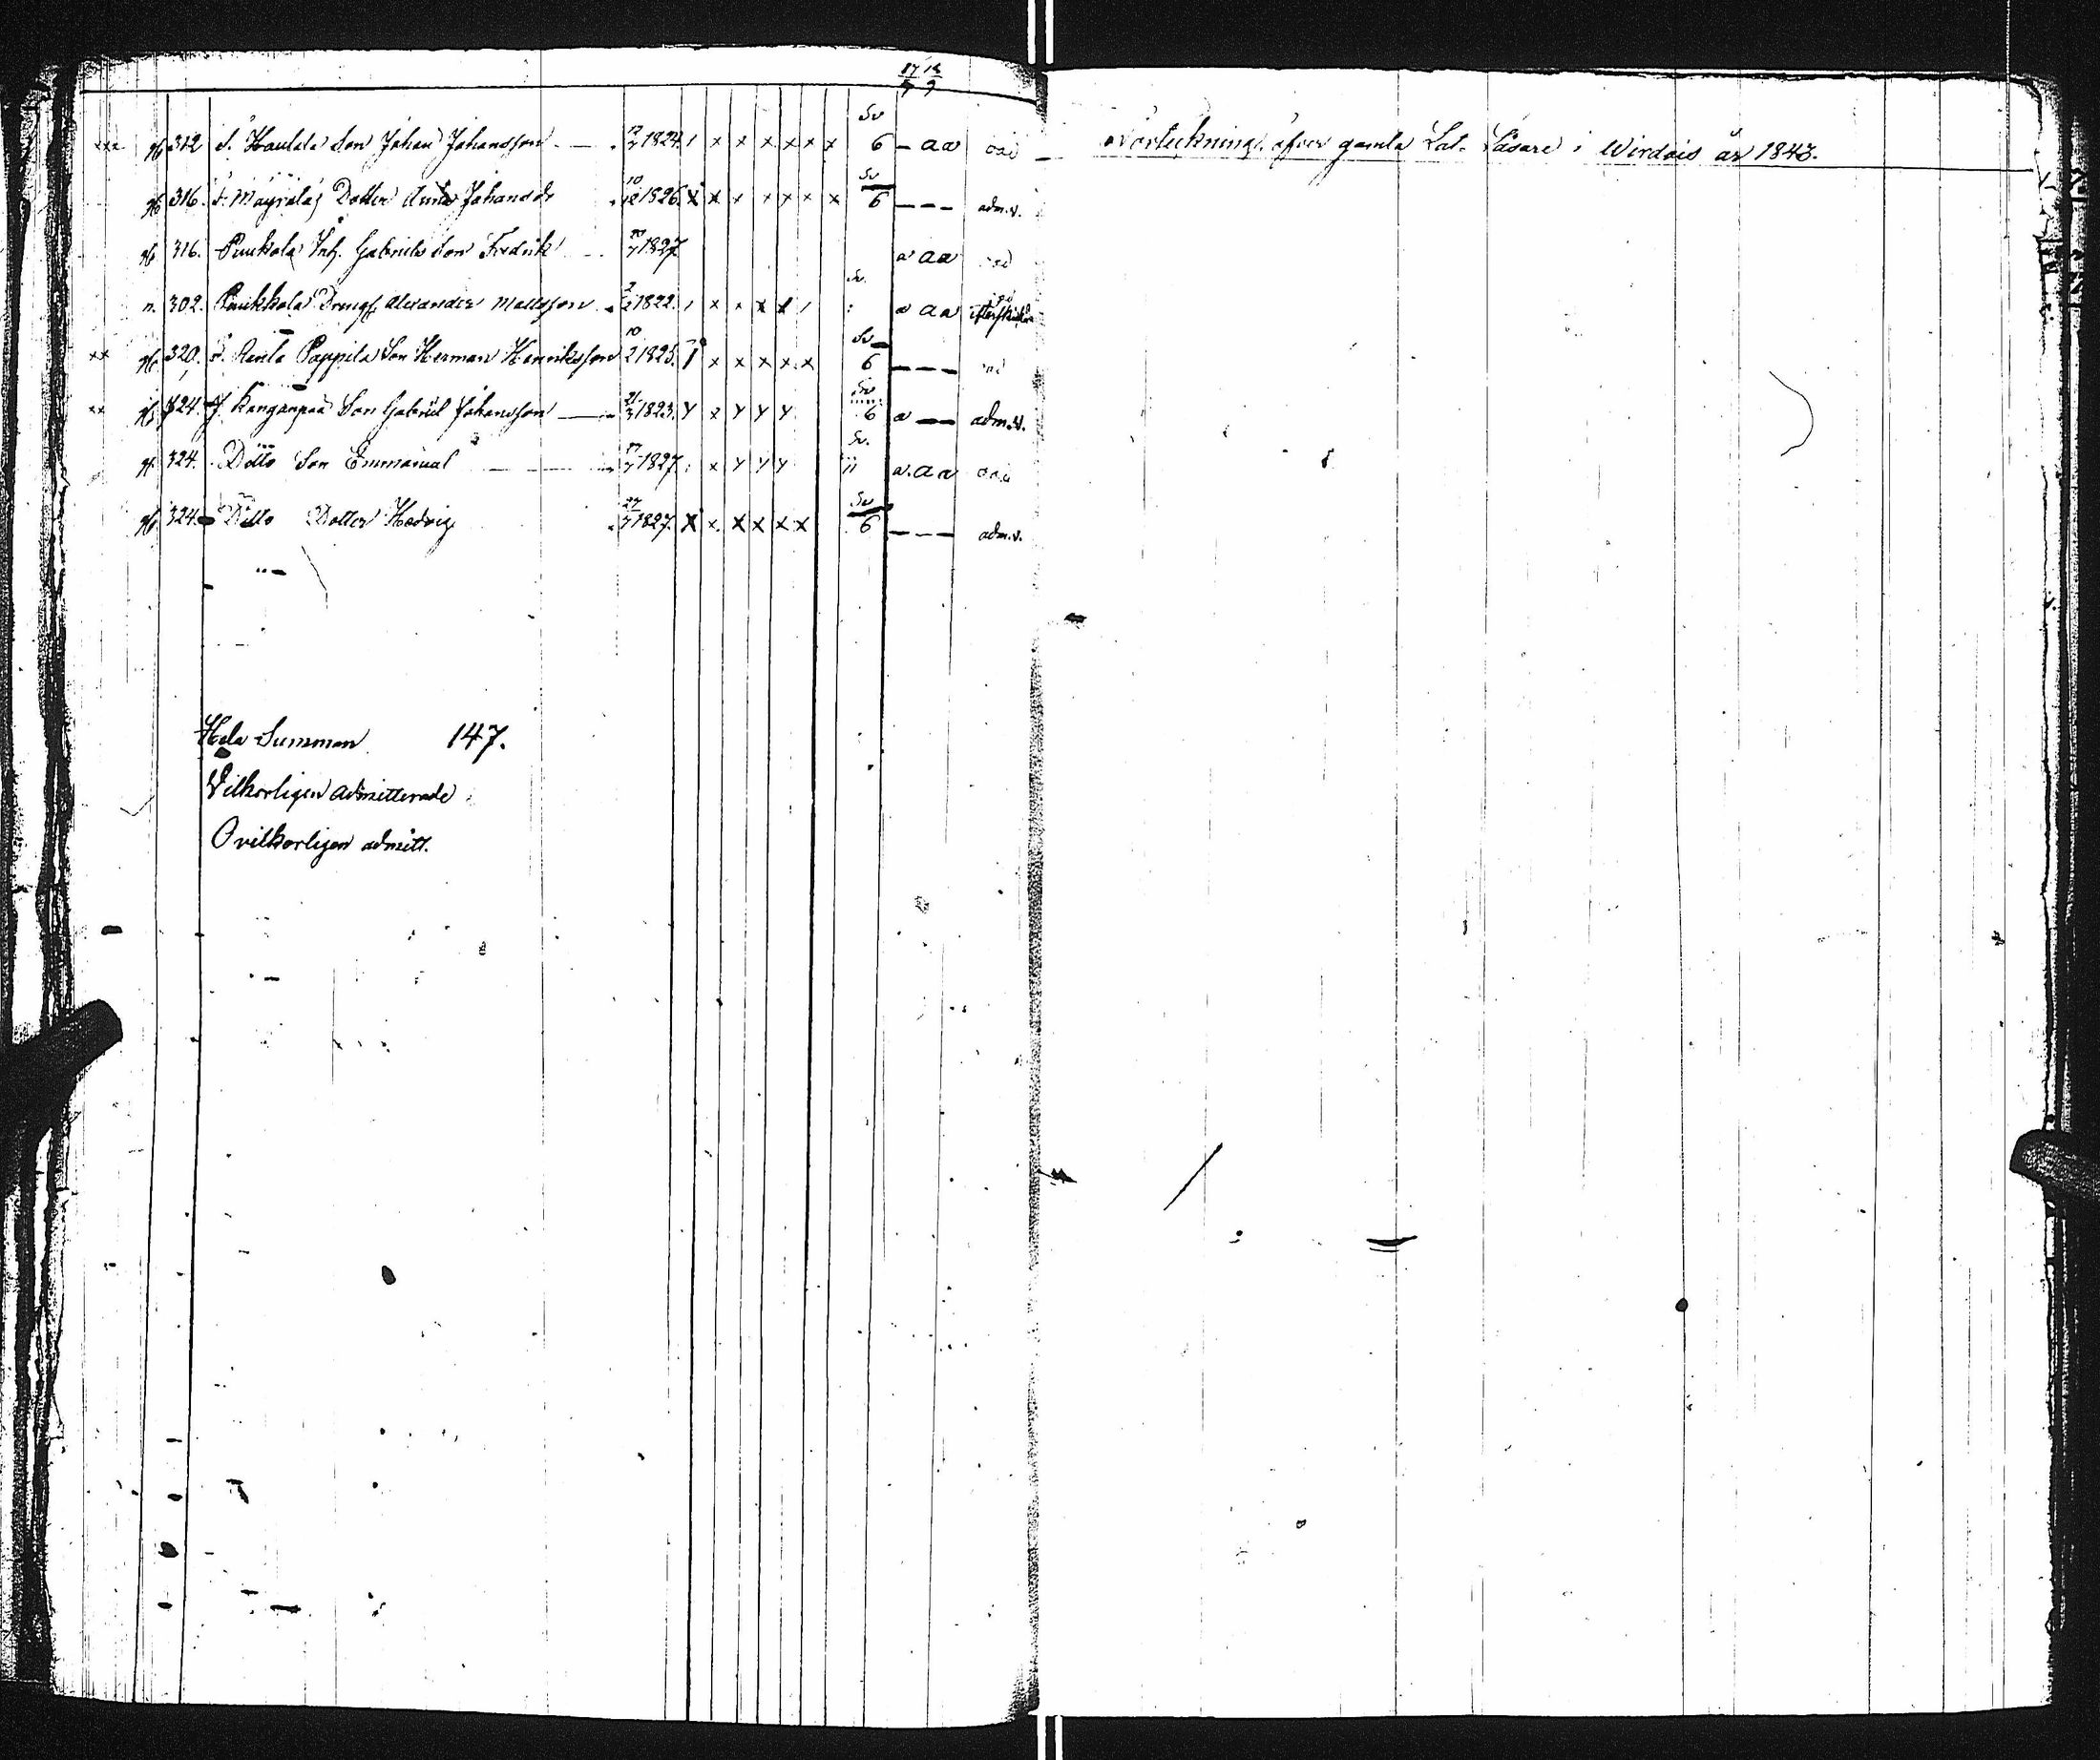 17/7 14/9
xxx 312 S. Haulala Son Johan Johansson 12/7 1824. / x x x x x x Sv 6 - a a oad
316. S. Mäyrälä Dotter Anna Johansdr 10/12 1826. x x x x x x x Sv 6 - - - adm. v.
316. Puukola Inh. Gabriels Son Fredrik 1827 a a a
n. 302. Puukkola Dreng Alexander Mattsson 2/2 1822. / x x x x / Sv. a a a
xx 320. S. Rantа Pappila Son Herman Henriksson 10/2 1825. x x x x x Sv 6 - - -
xx 324. J. Kangaspää Son Gabriel Johansson 21/3 1823. y x y y y Sv 6 a - - adm. v.
324. Ditto Son Emmanuel 17/7 1827. x y y y Sv. a. a a oad
324. Ditto Dotter Hedvig 27/7 1827. x x. x x x x Sv 6 - - - adm. v.
Hela Summan 147.
Vilkorligen admitterade
Ovilkorligen admitt.
Förteckning öfver gamla Lat. Läsare i Wirdois år 1843.